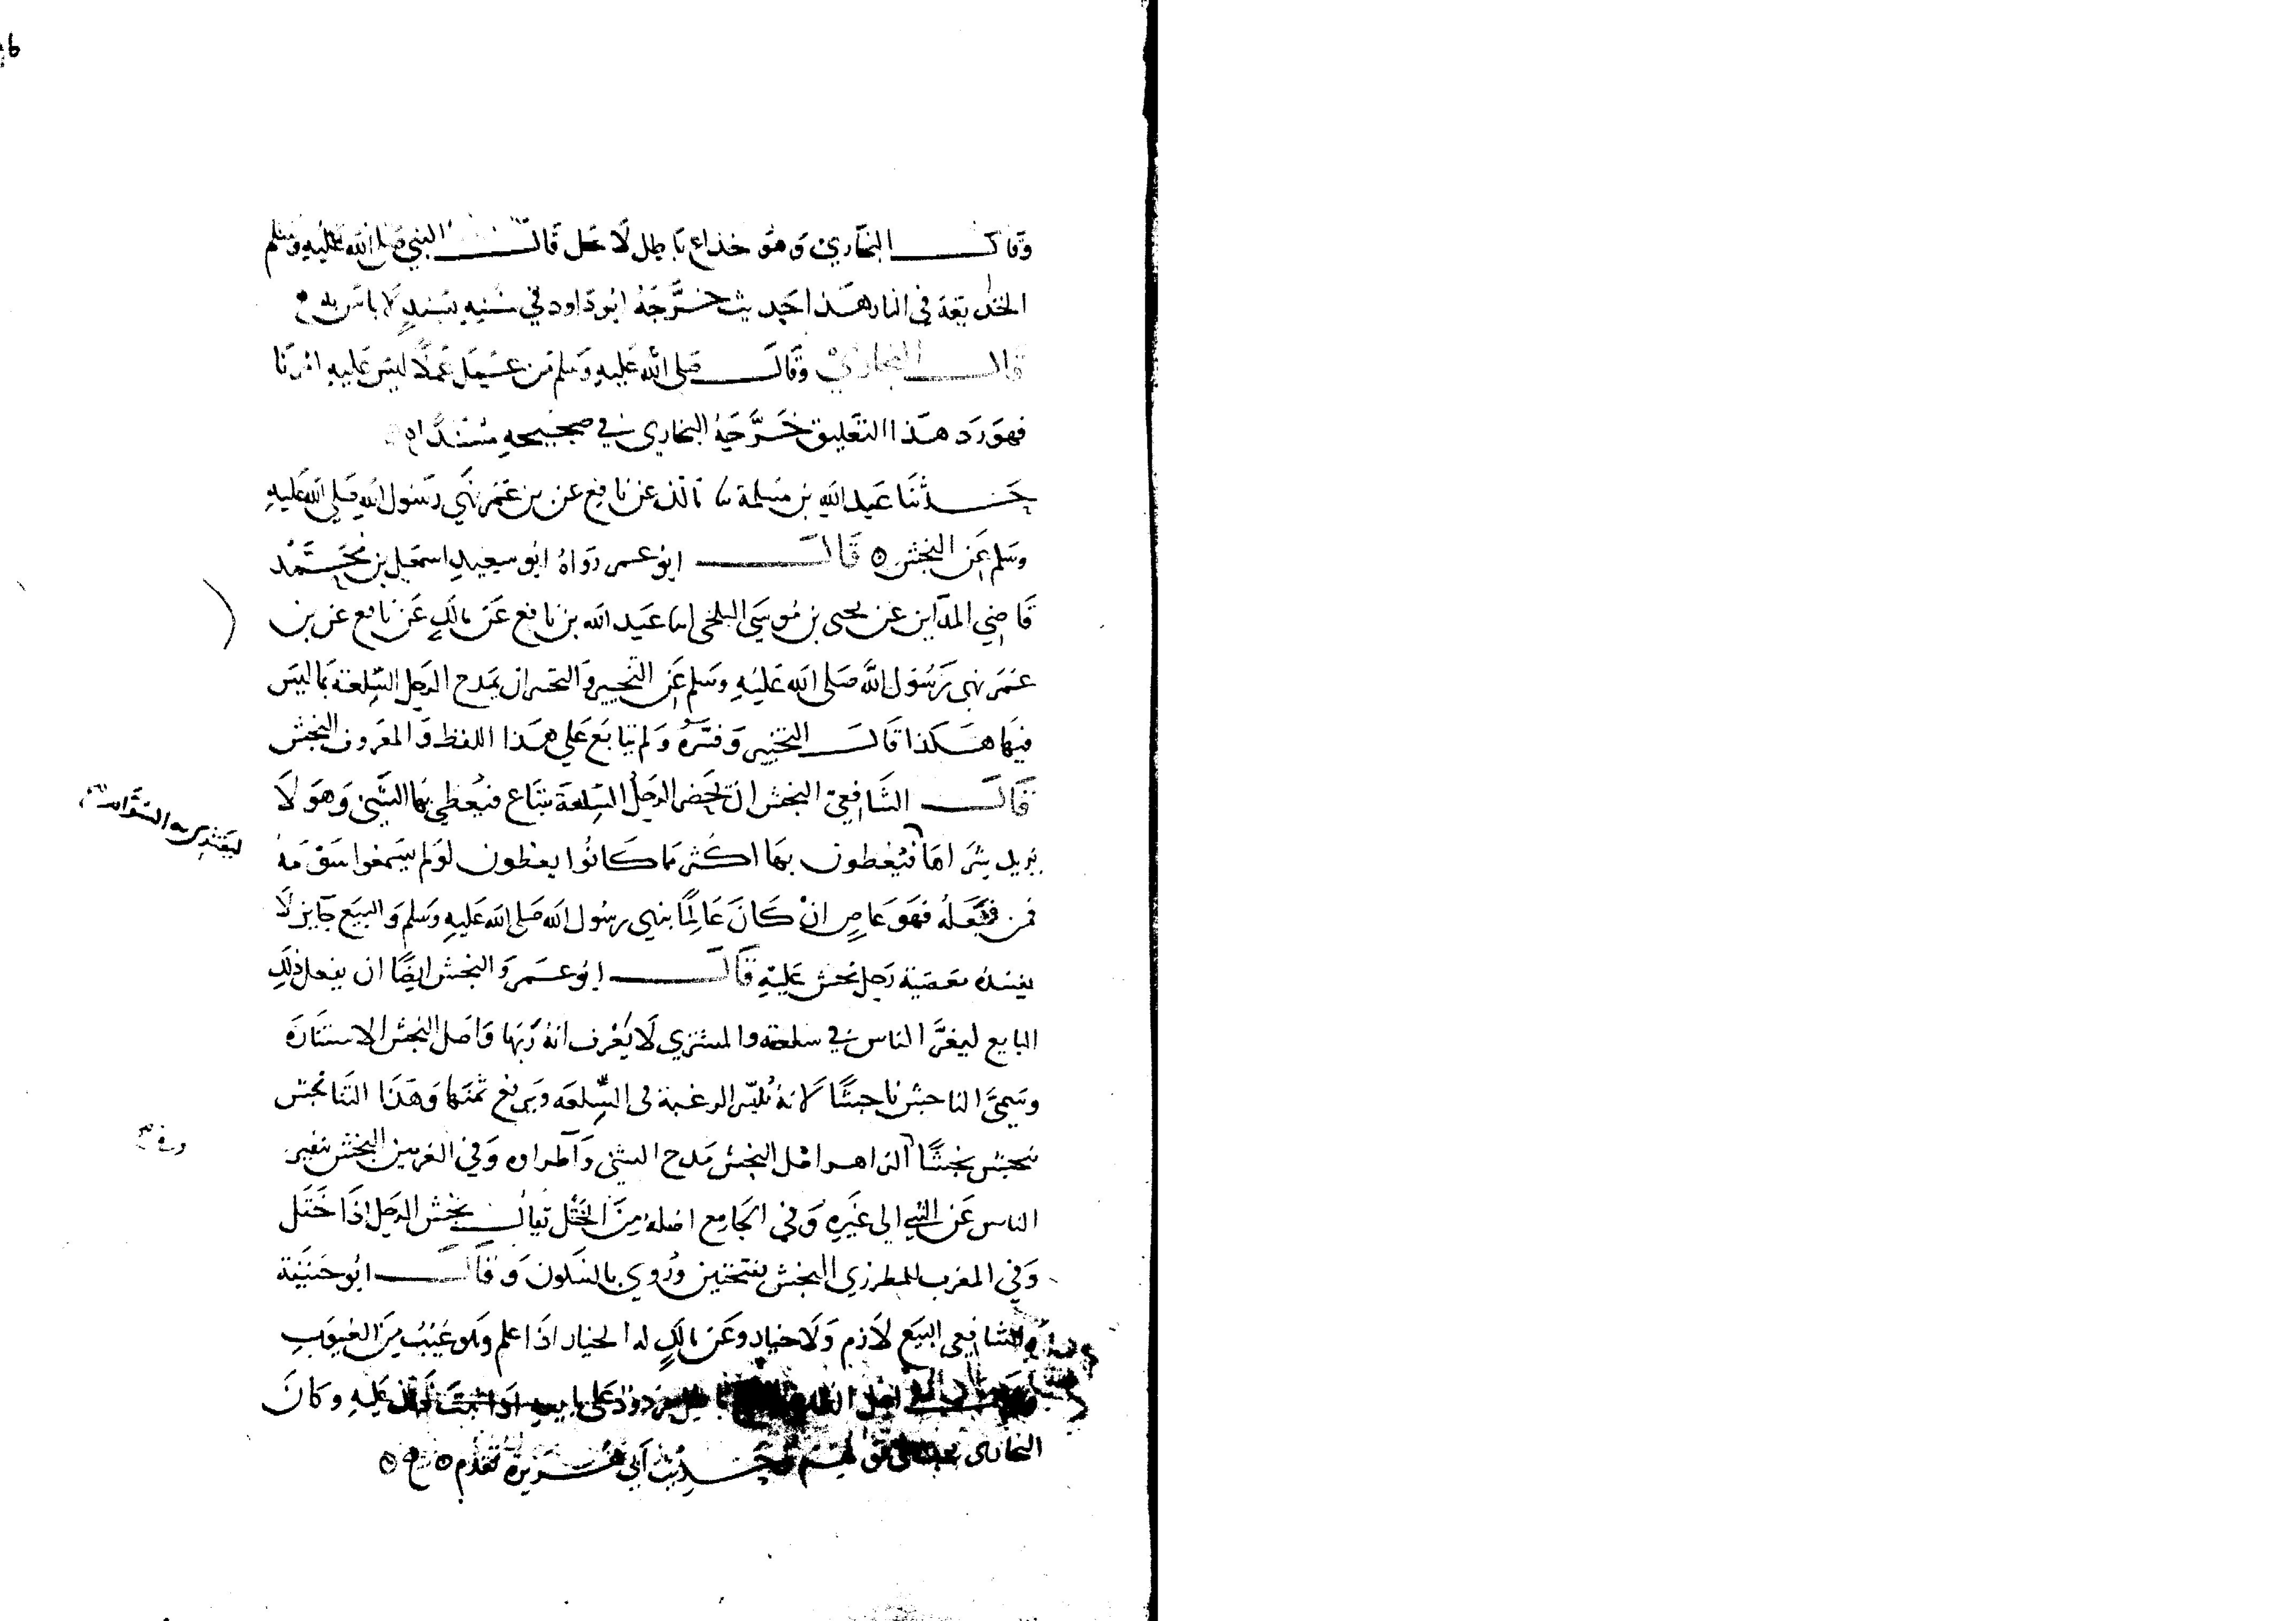 وقال البخاري وهو خداع باطل لا يحل قال النبي صلى الله عليه وسلم
الخديعة في النار هذا حديث خرجه ابو داود في سننه بسند لا باس به
قال البخاري وقال صلى الله عليه وسلم من عمل عملا ليس عليه امرنا
فهو رد هذا التعليق خرجه البخاري في صحيحه مسندا
حدثنا عبد الله بن مسلمة ثنا مالك عن نافع عن بن عمر نهى رسول الله صلى الله عليه
وسلم عن النجش ه قال ابو عمر رواه ابو سعيد اسمعيل بن محمد
قاضي المداين عن يحيى بن موسى البلخي انا عبد الله بن نافع عن مالك عن نافع عن بن
عمر نهى رسول الله صلى الله عليه وسلم عن التخيير والتخيير ان يمدح الرجل السلعة بما ليس
فيها هكذا قال التخيير وفسره ولم يتابع على هذا اللفظ والمعروف النجش
قال الشافعي النجش ان يحضر الرجل السلعة تباع فيعطي بها الشئ وهو لا
يريد شراها فيعطون بها اكثر مما كانوا يعطون لو لم يسمعوا سومه
ليقتدي به السوام
فمن فعله فهو عاص ان كان عالما بنهي رسول الله صلى الله عليه وسلم والبيع جايز لا
يفسده معصية رجل نجش عليه قال ابو عمر والنجش ايضا ان يفعل ذلك
البايع ليغر الناس في سلعته والمشتري لا يعرف انه ربها واصل النجش الاستثارة
وسمي الناجش ناجشا لانه يثير الرغبة في السلعه ويرفع ثمنها وهذا التناجش
نجش نجشا الزاهر اصل النجش مدح الشئ واطراه وفي الغريبين النجش تنفير
الناس عن الشئ الى غيره وفي الجامع اصله من الختل يقال نجش الرجل اذا ختل
وفي المغرب للمطرزي النجش بفتحتين وروي بالسكون وقال ابو حنيفة
والشافعي البيع لازم ولا خيار وعن مالك له الخيار اذا علم وهو عيب من العيوب
اهل الظاهر باطل مردود على بايعه اذا ثبت ذلك عليه وكان
البخاري حديث ابي هريرة تقدم ه